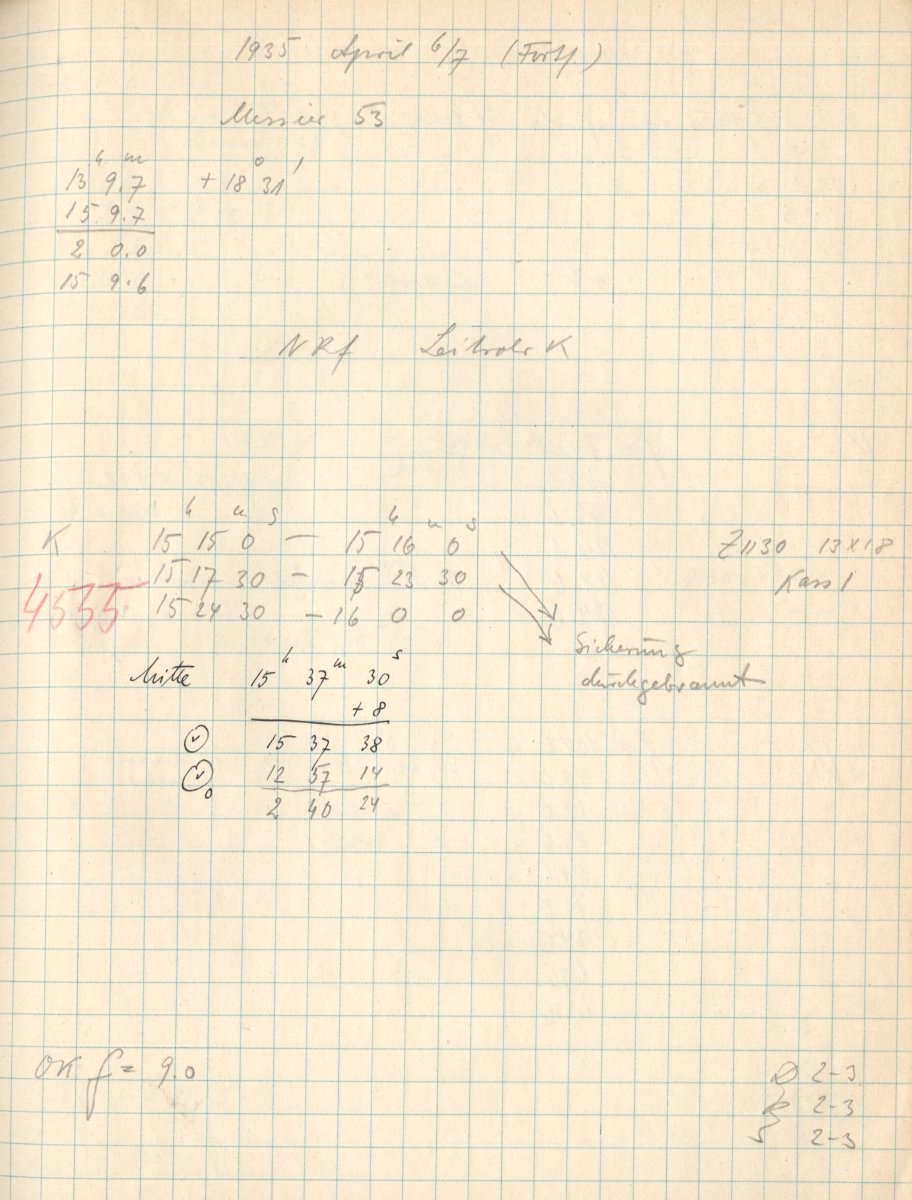 1935 April 6/7 (Forts.)
Messier 53
13ʰ 9.7ᵐ + 18° 31′
15 9.7
2 0.0
15 9.6
NRf Leitrohr K
K 15ʰ 15ᵐ 0ˢ – 15ʰ 16ᵐ 0ˢ Z1130 13x18
15 17 30 – 15 23 30 Kass 1
4535 15 24 30 – 16 0 0
Sicherung
durchgebrannt
Mitte 15ʰ 37ᵐ 30ˢ
+ 8
15 37 38
12 57 14
2 40 24
OK f = 9.0
2-3
2-3
S 2-3